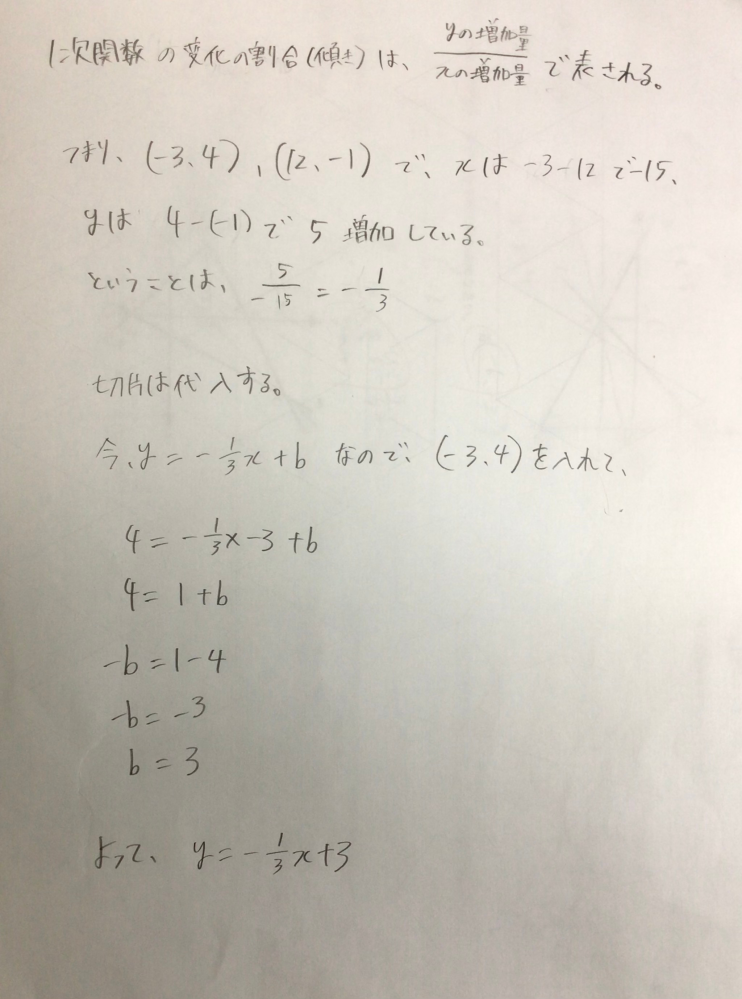 1次関数の変化の割合(傾き)は、yの増加量/xの増加量 で表される。
つまり、(-3、4)、(12、-1)で、xは -3-12で-15、
yは 4-(-1)で 5 増加している。
ということは、5/-15 = -1/3
切片は代入する。
今、y = -1/3x + b なので、(-3、4)を入れて、
4 = -1/3×-3+b
4 = 1+b
-b = 1-4
-b = -3
b = 3
よって、y = -1/3x+3